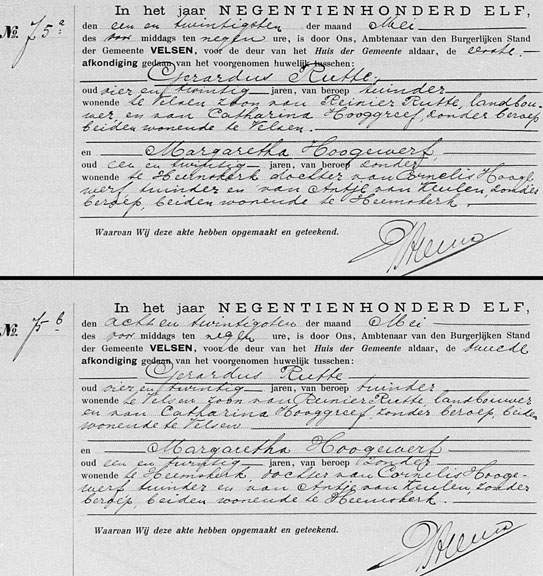 In het jaar NEGENTIENHONDERD ELF,
No. 75a den een en twintigsten der maand Mei
des voor middags ten negen ure, is door Ons, Ambtenaar van den Burgerlijken Stand
der Gemeente VELSEN, voor de deur van het Huis der Gemeente aldaar, de eerste
afkondiging gedaan van het voorgenomen huwelijk tusschen:
Gerardus Rutte,
oud vier en twintig jaren, van beroep tuinder
wonende te Velsen zoon van Reinier Rutte, landbou-
wer en van Catharina Hooggreef, zonder beroep
beiden wonende te Velsen.
en Margaretha Hoogewerf,
oud een en twintig jaren, van beroep zonder
wonende te Heemskerk dochter van Cornelis Hooge
werf, tuinder en van Antje van Keulen, zonder
beroep, beiden wonende te Heemskerk.
Waarvan Wij deze akte hebben opgemaakt en geteekend.
In het jaar NEGENTIENHONDERD ELF,
No. 75b den acht en twintigsten der maand Mei
des voor middags ten negen ure, is door Ons, Ambtenaar van den Burgerlijken Stand
der Gemeente VELSEN, voor de deur van het Huis der Gemeente aldaar, de tweede
afkondiging gedaan van het voorgenomen huwelijk tusschen:
Gerardus Rutte
oud vier en twintig jaren, van beroep tuinder
wonende te Velsen zoon van Reinier Rutte, landbouwer
en van Catharina Hooggreef, zonder beroep, beiden
wonende te Velsen
en Margaretha Hoogewerf
oud een en twintig jaren, van beroep zonder
wonende te Heemskerk, dochter van Cornelis Hooge-
werf, tuinder en van Antje van Keulen, zonder
beroep, beiden wonende te Heemskerk.
Waarvan Wij deze akte hebben opgemaakt en geteekend.